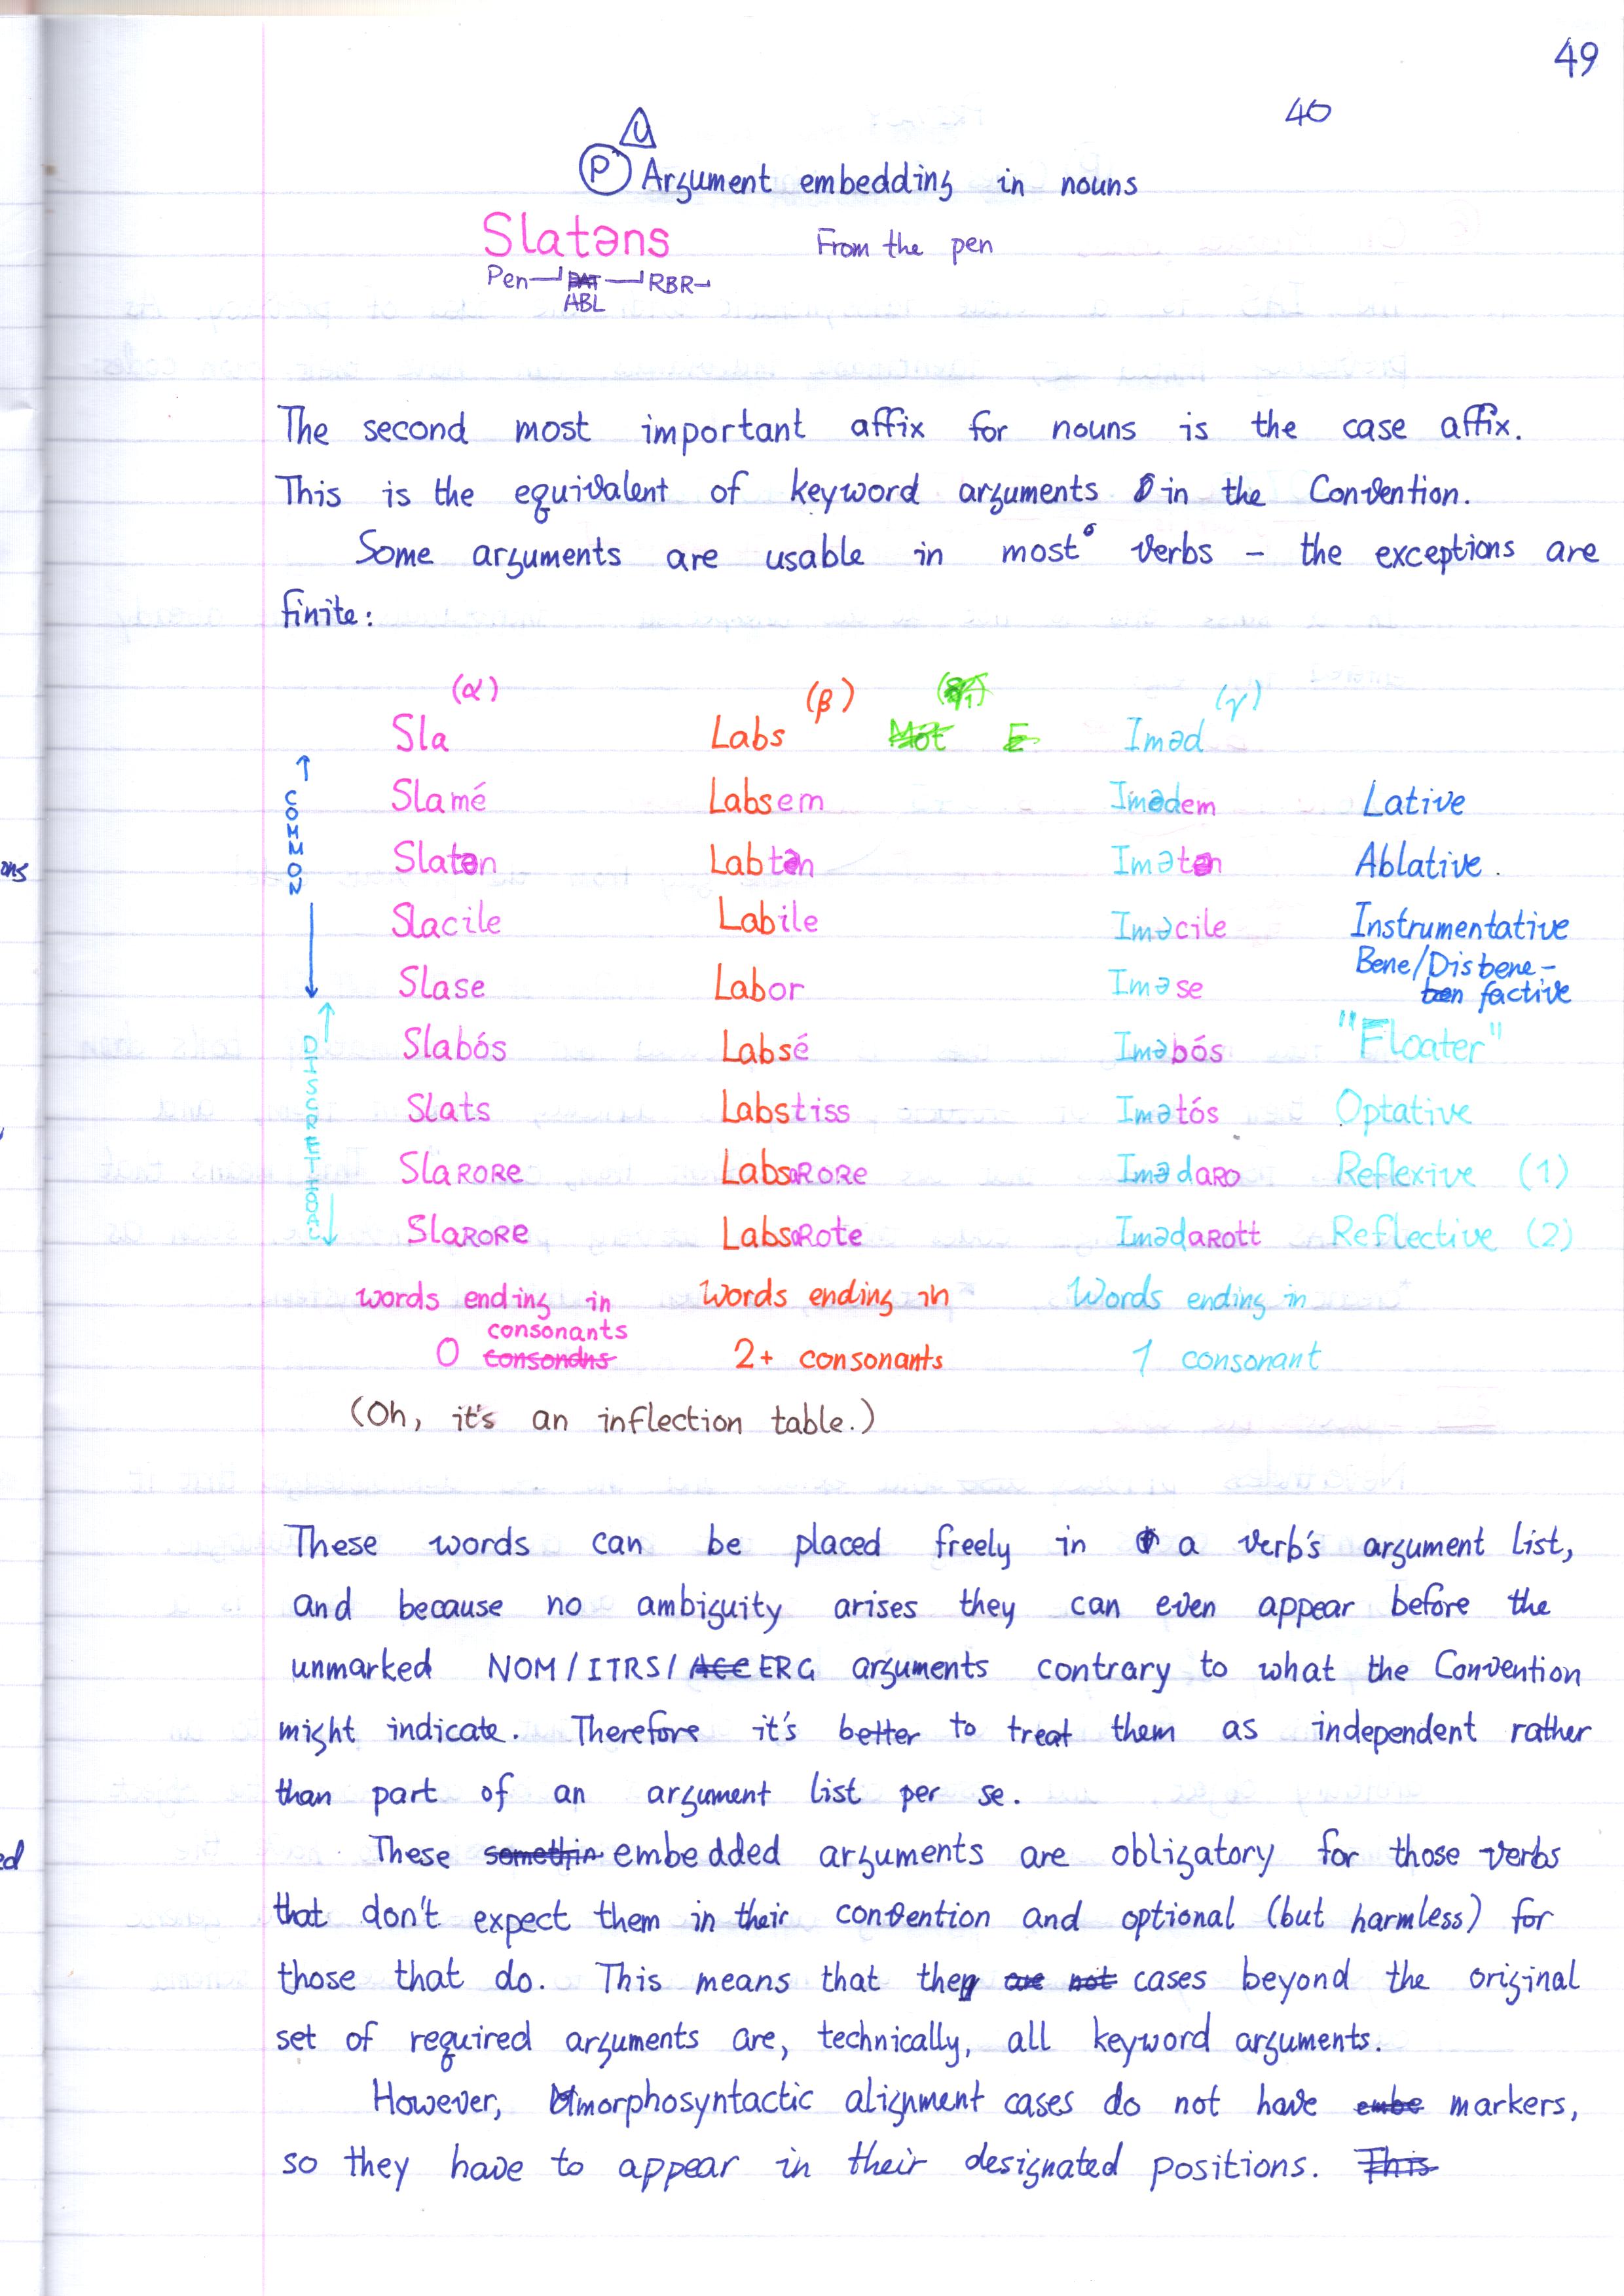 49
40
U
P Argument embedding in nouns
Slatəns From the pen
Pen DAT RBR
ABL
The second most important affix for nouns is the case affix.
This is the equivalent of keyword arguments in the Convention.
Some arguments are usable in most verbs – the exceptions are
finite:
(α) (β) (γ)
Sla Labs Mot E Iməd
Slamé Labsem Imədem Lative
Slatən Labtən Imətən Ablative.
Slacile Labile Iməcile Instrumentative
Slase Labor Iməse Bene/Disbene-
factive
Slabós Labsé Iməbós "Floater"
Slats Labstiss Imətós Optative
SlaRORE LabsaRORE ImədaRO Reflexive (1)
SlaRORE LabsaRote ImədaRott Reflective (2)
COMMON
words ending in Words ending in Words ending in
consonants
0 consondns 2+ consonants 1 consonant
(Oh, it's an inflection table.)
These words can be placed freely in a verb's argument list,
and because no ambiguity arises they can even appear before the
unmarked NOM/ITRS/ACC ERG arguments contrary to what the Convention
might indicate. Therefore it's better to treat them as independent rather
than part of an argument list per se.
These somethin embedded arguments are obligatory for those verbs
that don't expect them in their convention and optional (but harmless) for
those that do. This means that they are not cases beyond the original
set of required arguments are, technically, all keyword arguments.
However, morphosyntactic alignment cases do not have embe markers,
so they have to appear in their designated positions. This